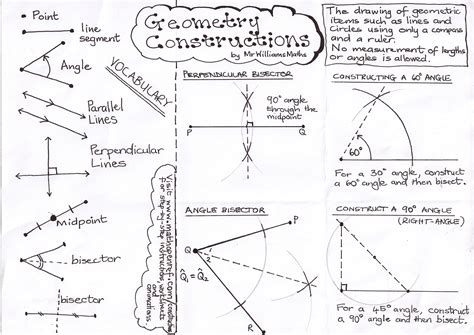 Point
line
segment
Angle
Parallel
Lines
Perpendicular
Lines
Midpoint
bisector
bisector
VOCABULARY
Geometry
Constructions
by MrWilliamsMaths
The drawing of geometric
items such as lines and
circles using only a compass
and a ruler.
No measurement of lengths
or angles is allowed.
PERPENDICULAR BISECTOR
90° angle
through the
midpoint
P
Q
CONSTRUCTING A 60° ANGLE
60°
For a 30° angle, construct
a 60° angle and then bisect.
Visit www.mathopenref.com/
for step-by-step instructions, worksheets
and
animations
ANGLE BISECTOR
P
Q
1
2
Q̂₁ = Q̂₂
R
CONSTRUCT A 90° ANGLE
(RIGHT-ANGLE)
For a 45° angle, construct
a 90° angle and then bisect.